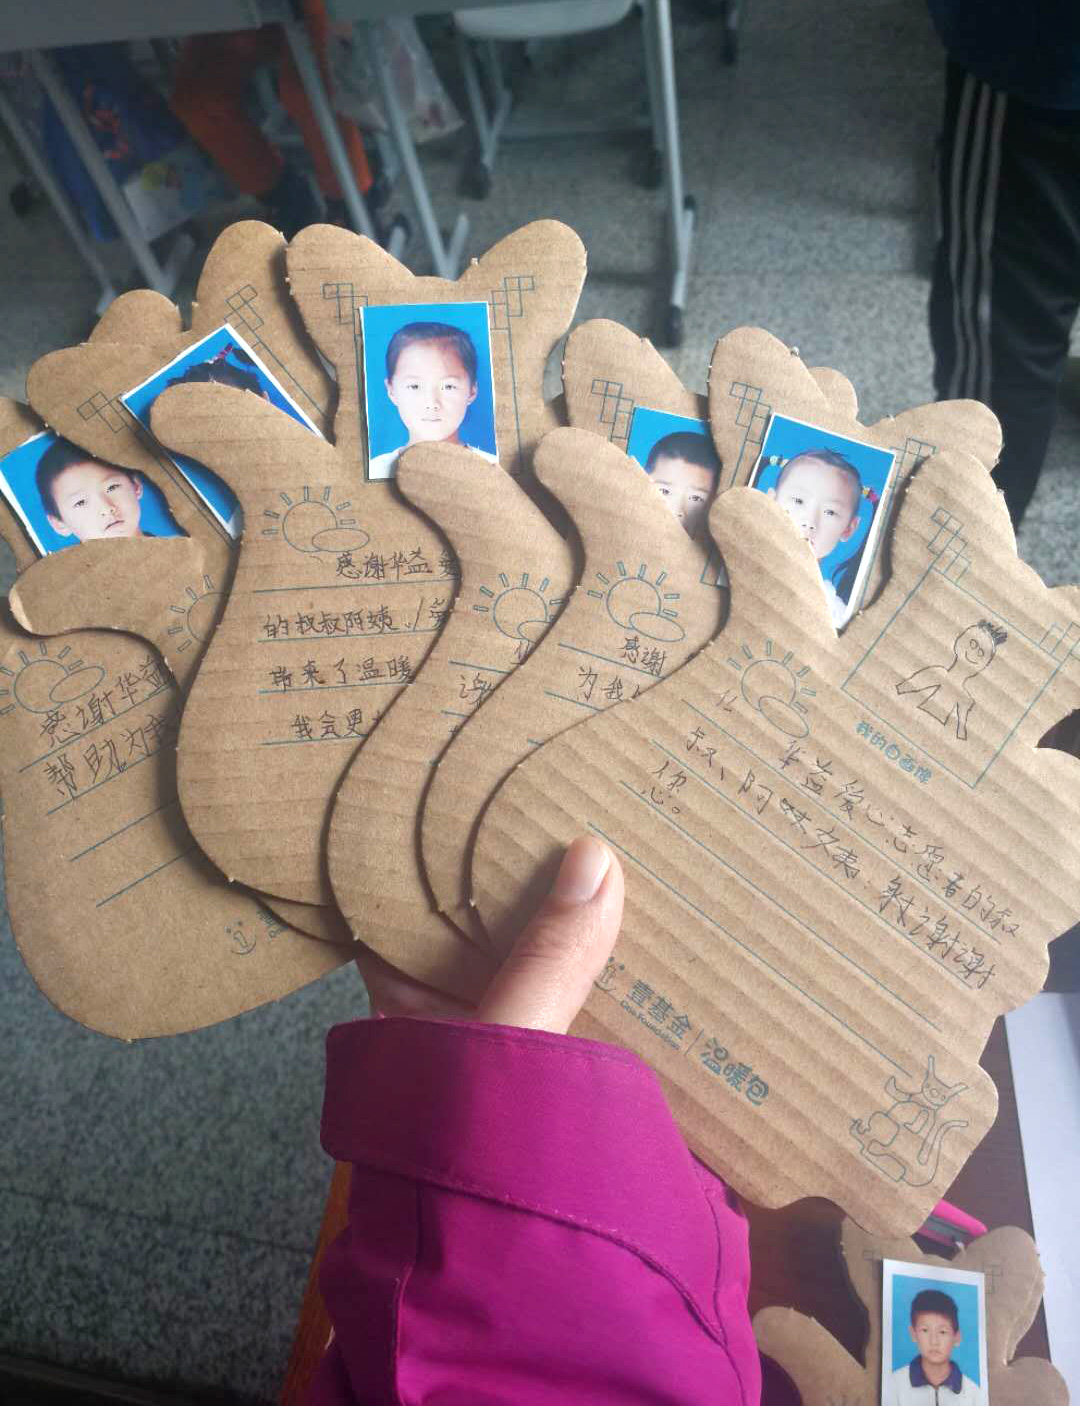 感谢华益
帮助为我
感谢华益爱
的叔叔阿姨
带来了温暖
我会更
谢
感谢
为我
我的自画像
华益爱心志愿者的叔
叔、阿
谢谢
您。
壹基金
One Foundation
温暖包